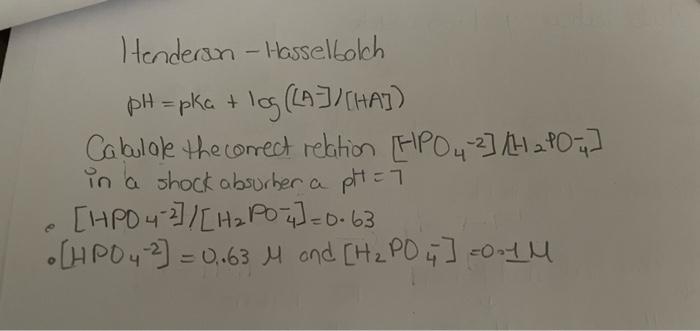 Henderson - Hasselbalch
pH = pKa + log([A-]/[HA])
Calculate the correct relation [HPO4-2]/[H2PO-4]
in a shock absorber a pH = 7
• [HPO4-2]/[H2PO-4] = 0.63
• [HPO4-2] = 0.63 M and [H2PO-4] = 0.1 M